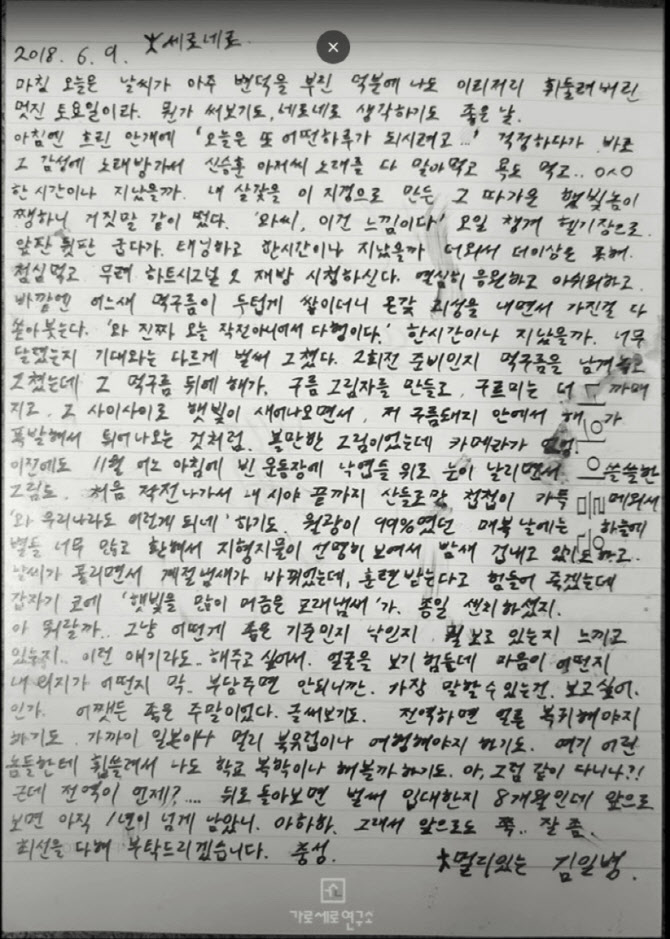 2018. 6. 9. 세로네로.
마침 오늘은 날씨가 아주 변덕을 부린 덕분에 나도 이리저리 휘둘려버린
멋진 토요일이라. 뭔가 써보기도, 세로네로 생각하기도 좋은 날.
아침엔 흐린 안개에 '오늘은 또 어떤하루가 되시려고...' 걱정하다가 바로
그 감성에 노래방가서 신승훈 아저씨 노래를 다 말아먹고 욕도 먹고..
한시간이나 지났을까. 내 살갗을 이 지경으로 만든 그 따가운 햇빛놈이
쨍하니 거짓말 같이 떴다. '와씨, 이건 느낌이다' 오일 챙겨 헬기장으로.
앞판 뒷판 굽다가. 태닝하고 한시간이나 지났을까 더워서 더이상은 못해.
점심먹고 무려 하트시그널2 재방 시청하신다. 열심히 응원하고 아쉬워하고.
바깥엔 어느새 먹구름이 두텁게 쌓이더니 온갖 괴성을 내면서 가진걸 다
쏟아붓는다. '와 진짜 오늘 작전아니여서 다행이다.' 한시간이나 지났을까. 너무
닫혔는지 기대와는 다르게 벌써 그쳤다. 2회전 준비인지 먹구름을 남겨놓고
그쳤는데 그 먹구름 뒤에 해가. 구름 그림자를 만들고, 구르미는 더 까매
지고. 그 사이사이로 햇빛이 새어나오면서, 저 구름돼지 안에서 해가
폭발해서 튀어나오는 것처럼. 볼만한 그림이었는데 카메라가
이전에도 11월 어느 아침에 빈 운동장에 낙엽들 위로 눈이 날리면서 쓸쓸한
그림도. 처음 작전나가서 내 시야 끝까지 산들로만 첩첩이 가득 메워서
'와 우리나라도 이렇게 되네' 하기도. 월광이 99%였던 매복 날에는 하늘에
별들 너무 많고 환해서 지형지물이 선명히 보여서 밤새 겁내고 있기도하고.
날씨가 풀리면서 계절냄새가 바뀌었는데, 훈련받는다고 힘들어 죽겠는데
갑자기 코에 '햇빛을 많이 머금은 모래냄새'가. 종일 센치하셨지.
아 뭐랄까.. 그냥 어떤게 좋은 기준인지 낙인지 뭘 보고 있는지 느끼고
있는지.. 이런 얘기라도.. 해주고 싶어서. 얼굴을 보기 힘든데 마음이 어떤지
내 의지가 어떤지 막.. 부담주면 안되니깐. 가장 말할수있는건. 보고싶어.
인가. 어쨋든 좋은 주말이었다. 글써보기도. 전역하면 얼른 복귀해야지
하기도. 가까이 일본이나 멀리 북유럽이나 여행해야지 하기도. 여기 어린
놈들한테 휩쓸려서 나도 학교 복학이나 해볼까하기도. 아, 그럼 같이 다니나?!
근데 전역이 언제?.... 뒤로 돌아보면 벌써 입대한지 8개월인데 앞으로
보면 아직 1년이 넘게 남았니. 아하하. 그래서 앞으로도 쭉.. 잘 좀.
최선을 다해 부탁드리겠습니다. 충성.
멀리있는 김일병.
가로세로연구소